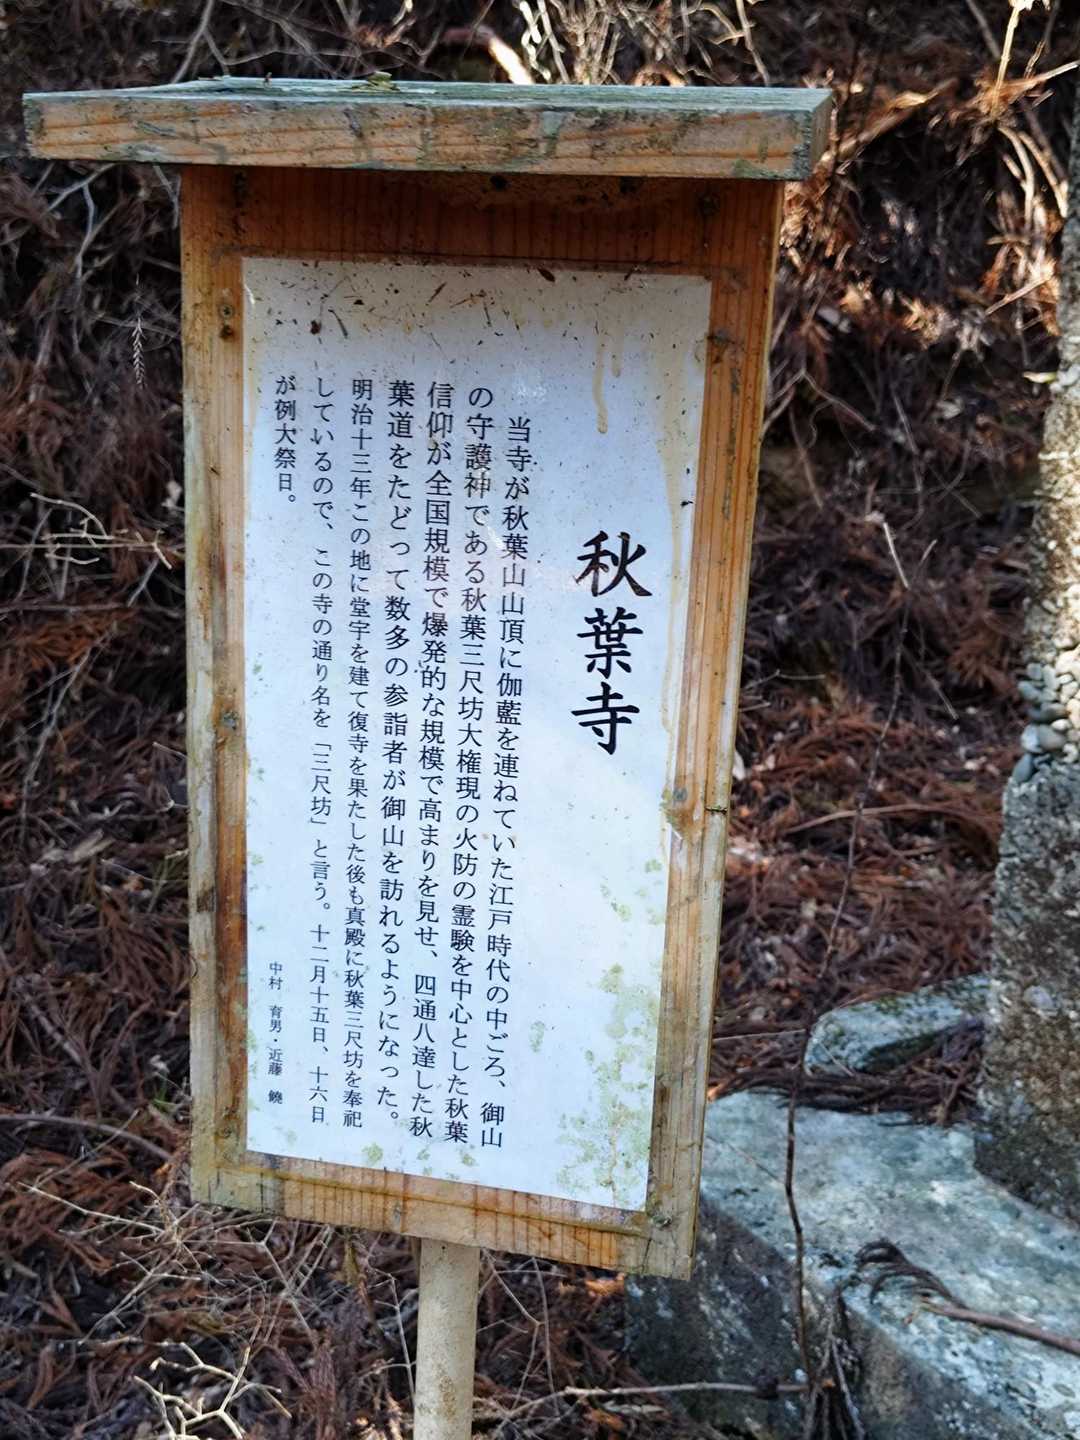 秋葉寺
当寺が秋葉山山頂に伽藍を連ねていた江戸時代の中ごろ、御山
の守護神である秋葉三尺坊大権現の火防の霊験を中心とした秋葉
信仰が全国規模で爆発的な規模で高まりを見せ、四通八達した秋
葉道をたどって数多の参詣者が御山を訪れるようになった。
明治十三年この地に堂宇を建て復寺を果たした後も真殿に秋葉三尺坊を奉祀
しているので、この寺の通り名を「三尺坊」と言う。十二月十五日、十六日
が例大祭日。
中村 育男・近藤 鐃